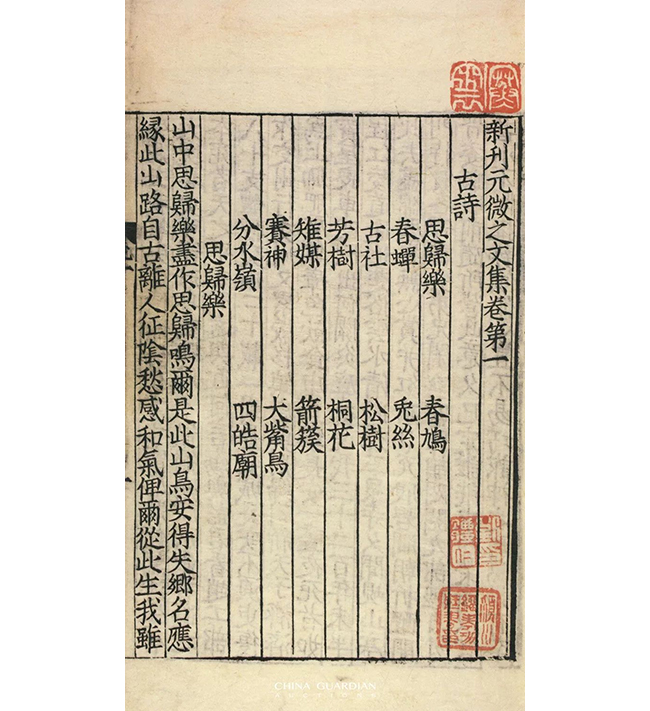 新刊元微之文集卷第一
古詩
思歸樂　春鳩
春蟬　兎絲
古社　松樹
芳樹　桐花
雉媒　箭簇
賽神　大觜烏
分水嶺　四皓廟
思歸樂
山中思歸樂盡作思歸鳴爾是此山鳥安得失鄉名應
緣此山路自古離人征陰愁感和氣俾爾從此生我雖
CHINA GUARDIAN
AUCTIONS